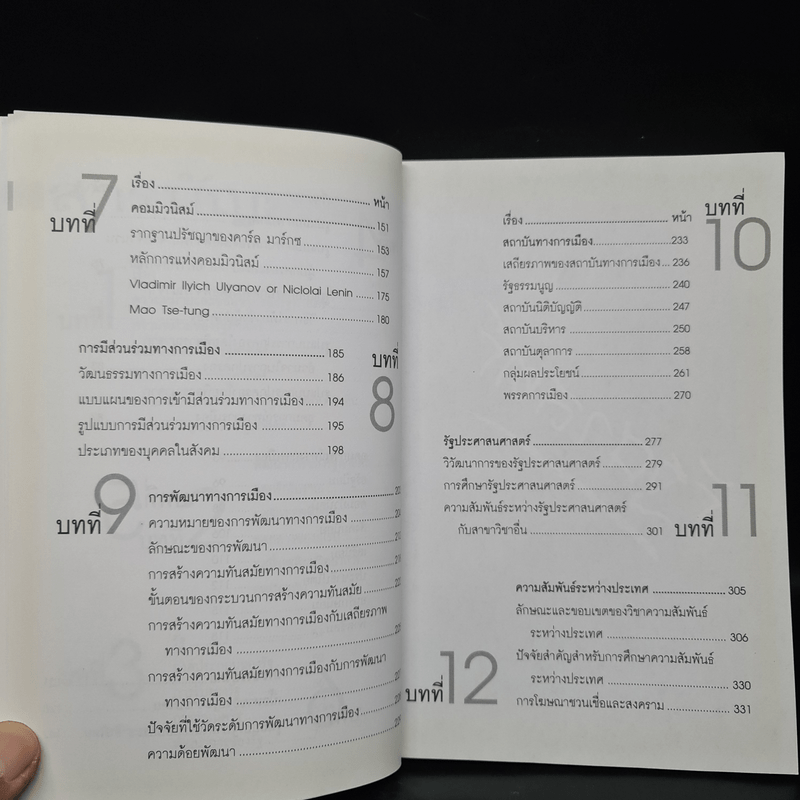 บทที่ 7
เรื่อง .......... หน้า
คอมมิวนิสม์ .......... 151
รากฐานปรัชญาของคาร์ล มาร์กซ .......... 153
หลักการแห่งคอมมิวนิสม์ .......... 157
Vladimir Ilyich Ulyanov or Niclolai Lenin .......... 175
Mao Tse-tung .......... 180
บทที่ 8
การมีส่วนร่วมทางการเมือง .......... 185
วัฒนธรรมทางการเมือง .......... 186
แบบแผนของการเข้ามีส่วนร่วมทางการเมือง ...... 194
รูปแบบการมีส่วนร่วมทางการเมือง .......... 195
ประเภทของบุคคลในสังคม .......... 198
บทที่ 9
การพัฒนาทางการเมือง ..........
ความหมายของการพัฒนาทางการเมือง ..........
ลักษณะของการพัฒนา ..........
การสร้างความทันสมัยทางการเมือง ..........
ขั้นตอนของกระบวนการสร้างความทันสมัย ..........
การสร้างความทันสมัยทางการเมืองกับเสถียรภาพ
ทางการเมือง ..........
การสร้างความทันสมัยทางการเมืองกับการพัฒนา
ทางการเมือง ..........
ปัจจัยที่ใช้วัดระดับการพัฒนาทางการเมือง ..........
ความด้อยพัฒนา ..........
บทที่ 10
เรื่อง .......... หน้า
สถาบันทางการเมือง .......... 233
เสถียรภาพของสถาบันทางการเมือง ... 236
รัฐธรรมนูญ .......... 240
สถาบันนิติบัญญัติ .......... 247
สถาบันบริหาร .......... 250
สถาบันตุลาการ .......... 258
กลุ่มผลประโยชน์ .......... 261
พรรคการเมือง .......... 270
บทที่ 11
รัฐประศาสนศาสตร์ .......... 277
วิวัฒนาการของรัฐประศาสนศาสตร์ .......... 279
การศึกษารัฐประศาสนศาสตร์ .......... 291
ความสัมพันธ์ระหว่างรัฐประศาสนศาสตร์
กับสาขาวิชาอื่น .......... 301
บทที่ 12
ความสัมพันธ์ระหว่างประเทศ .......... 305
ลักษณะและขอบเขตของวิชาความสัมพันธ์
ระหว่างประเทศ .......... 306
ปัจจัยสำคัญสำหรับการศึกษาความสัมพันธ์
ระหว่างประเทศ .......... 330
การโฆษณาชวนเชื่อและสงคราม .......... 331